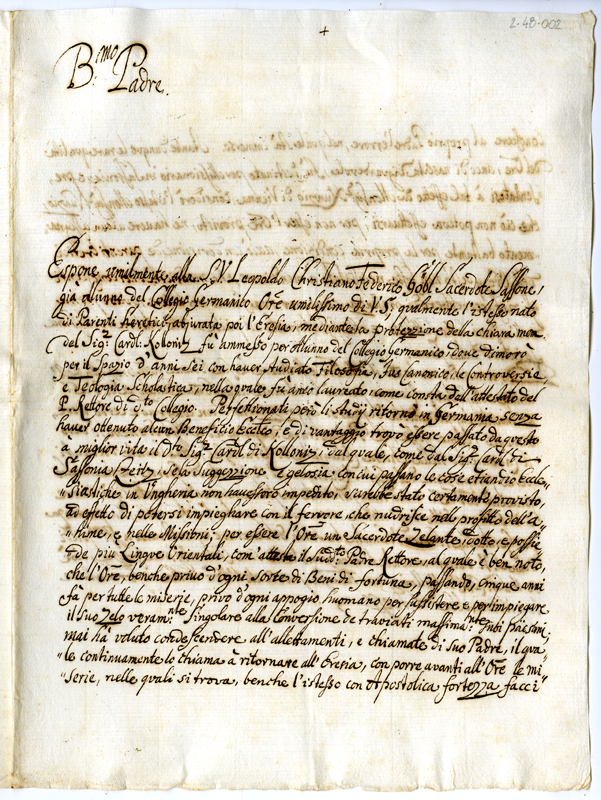 2-48-002
+
B.mo Padre.
Espone umilmente alla S.V. Leopoldo Christiano Federico Göbl Sacerdote Sassone,
già Alunno del Collegio Germanico Ore umilissimo di V.S, qualmente l'istesso nato
di Parenti heretici, abjurata poi l'Eresia, mediante la protezzione della chiara mem.
del Sigr. Cardl. Kollonitz fu ammesso per Alunno del Collegio Germanico doue dimorò
per il Spazio d'anni sei con hauer studiato Filosofia, Jus Canonico, le Controuersie,
e Teologia Scholastica, nella quale fù anco laureato, come consta dall'attestato del
P. Rettore di d.to Collegio. Perfettionati però li Studij ritornò in Germania senza
hauer ottenuto alcun Beneficio Eccl.co, e di vantaggio trouò essere passato da questo
à miglior vita il D.to Sigr. Card.l di Kollonitz, dal quale, come dal Sigr. Card.l di
Sassonia Zeitz, se la Suggezzione e gelosia con cui passano le cose etiandio Eccle-
siastiche in Ungheria non hauessero impedito, sarebbe stato certamente provisto,
ad effetto di potersi impieghare con il fervore che nudrisce nell profitto dell'a-
nime, e nelle Missioni; per essere l'Ore un Sacerdote Zelante, dotto, e possie-
de più Lingue Orientali, com'attesta il Sudd.to Padre Rettore, al quale è ben noto,
che l'Ore, benche priuo d'ogni sorte di Beni di fortuna, passando cinque anni
fà per tutte le miserie, privo d'ogni appogio huomano per sussistere e per impiegare
il suo Zelo veram.nte Singolare alla Conversione de traviati massimam.nte suoi Paesani,
mai hà voluto condescendere all'allettamenti, e chiamate di Suo Padre, il qua-
le continuamente lo chiama à ritornare all'Eresia, con porre avanti all'Ore le mi-
serie, nelle quali si trova, benche l'istesso con Apostolica fortezza facci